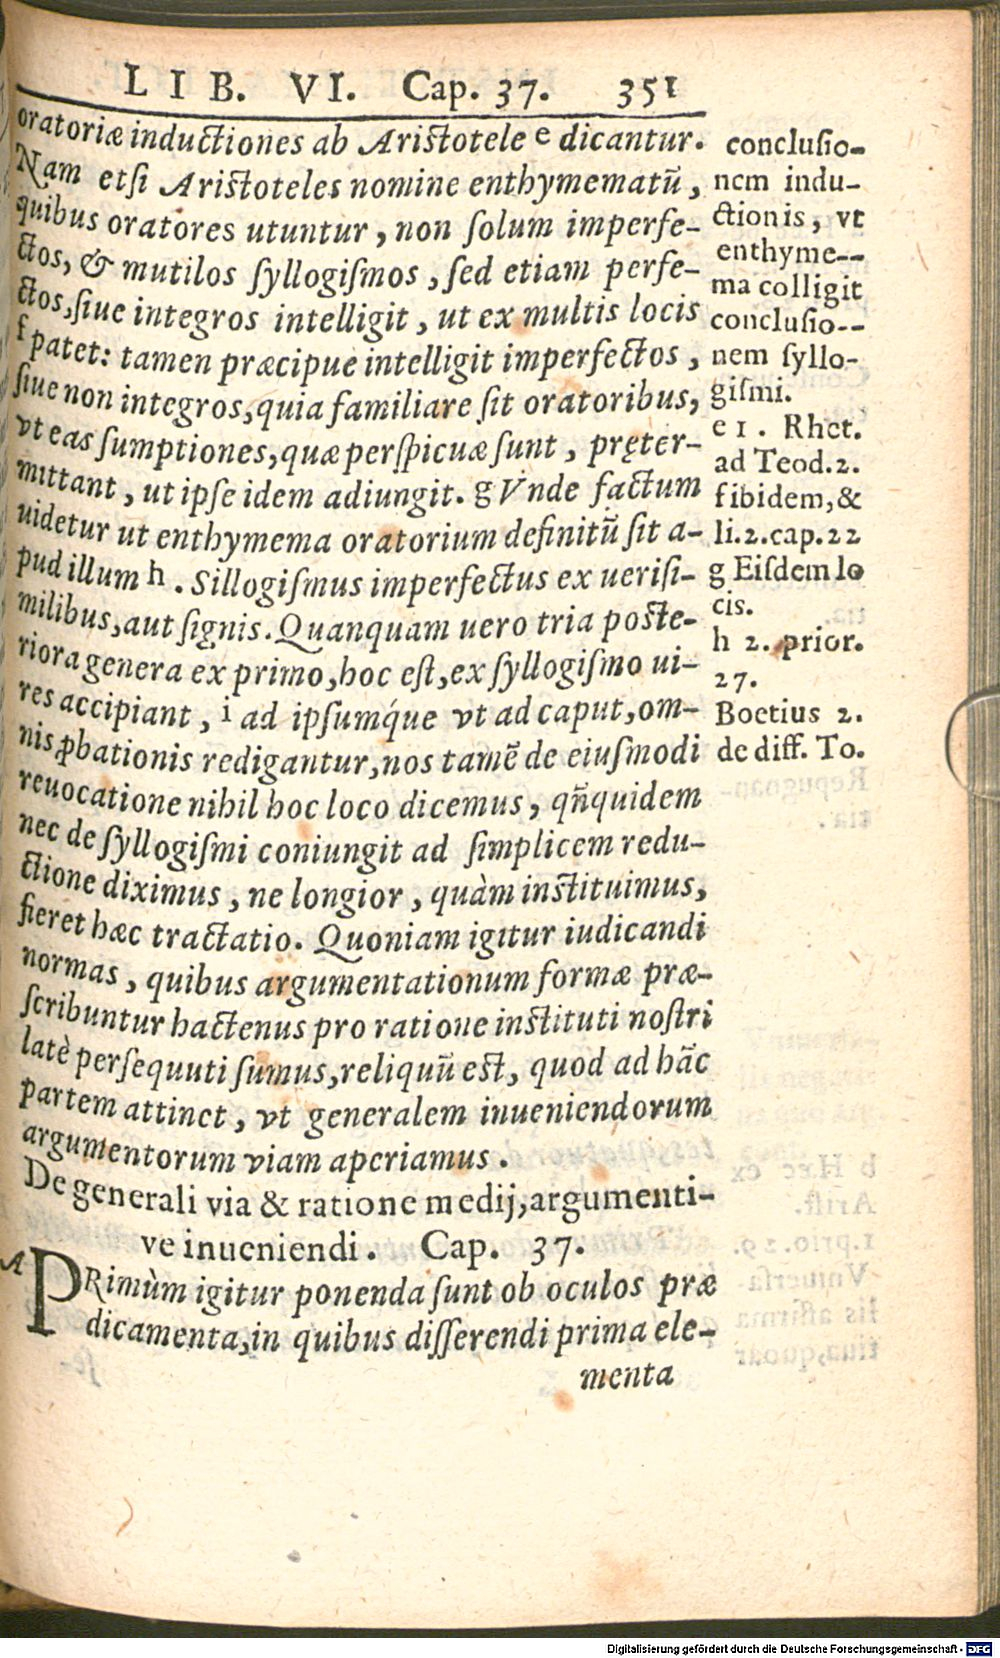 LIB. VI. Cap. 37. 351
oratoriæ inductiones ab Aristotele e dicantur.
Nam etsi Aristoteles nomine enthymematū,
quibus oratores utuntur, non ſolum imperfe-
ctos, & mutilos ſyllogiſmos, ſed etiam perfe-
ctos, ſiue integros intelligit, ut ex multis locis
f patet: tamen præcipue intelligit imperfectos,
ſiue non integros, quia familiare ſit oratoribus,
vt eas ſumptiones, quæ perſpicuæ ſunt, pręter-
mittant, ut ipſe idem adiungit. g Vnde factum
uidetur ut enthymema oratorium definitū ſit a-
pud illum h. Sillogiſmus imperfectus ex ueriſi-
milibus, aut ſignis. Quanquam uero tria poste-
riora genera ex primo, hoc eſt, ex ſyllogiſmo ui-
res accipiant, i ad ipſumq́ue vt ad caput, om-
nis ꝓbationis redigantur, nos tamē de eiuſmodi
reuocatione nihil hoc loco dicemus, qn̄quidem
nec de ſyllogiſmi coniungit ad ſimplicem redu-
ctione diximus, ne longior, quàm instituimus,
fieret hæc tractatio. Quoniam igitur iudicandi
normas, quibus argumentationum formæ præ-
ſcribuntur hactenus pro ratione instituti noſtri
latè perſequuti ſumus, reliquū est, quod ad hāc
partem attinet, vt generalem inueniendorum
argumentorum viam aperiamus.
De generali via & ratione medij, argumenti-
ve inueniendi. Cap. 37.
A PRimùm igitur ponenda ſunt ob oculos præ
dicamenta, in quibus diſſerendi prima ele-
menta
concluſio-
nem indu-
ctionis, vt
enthyme--
ma colligit
concluſio--
nem ſyllo-
giſmi.
e 1. Rhet.
ad Teod. 2.
f ibidem, &
li. 2. cap. 22
g Eiſdem lo
cis.
h 2. prior.
27.
Boetius 2.
de diff. To.
Digitalisierung gefördert durch die Deutsche Forschungsgemeinschaft - DFG